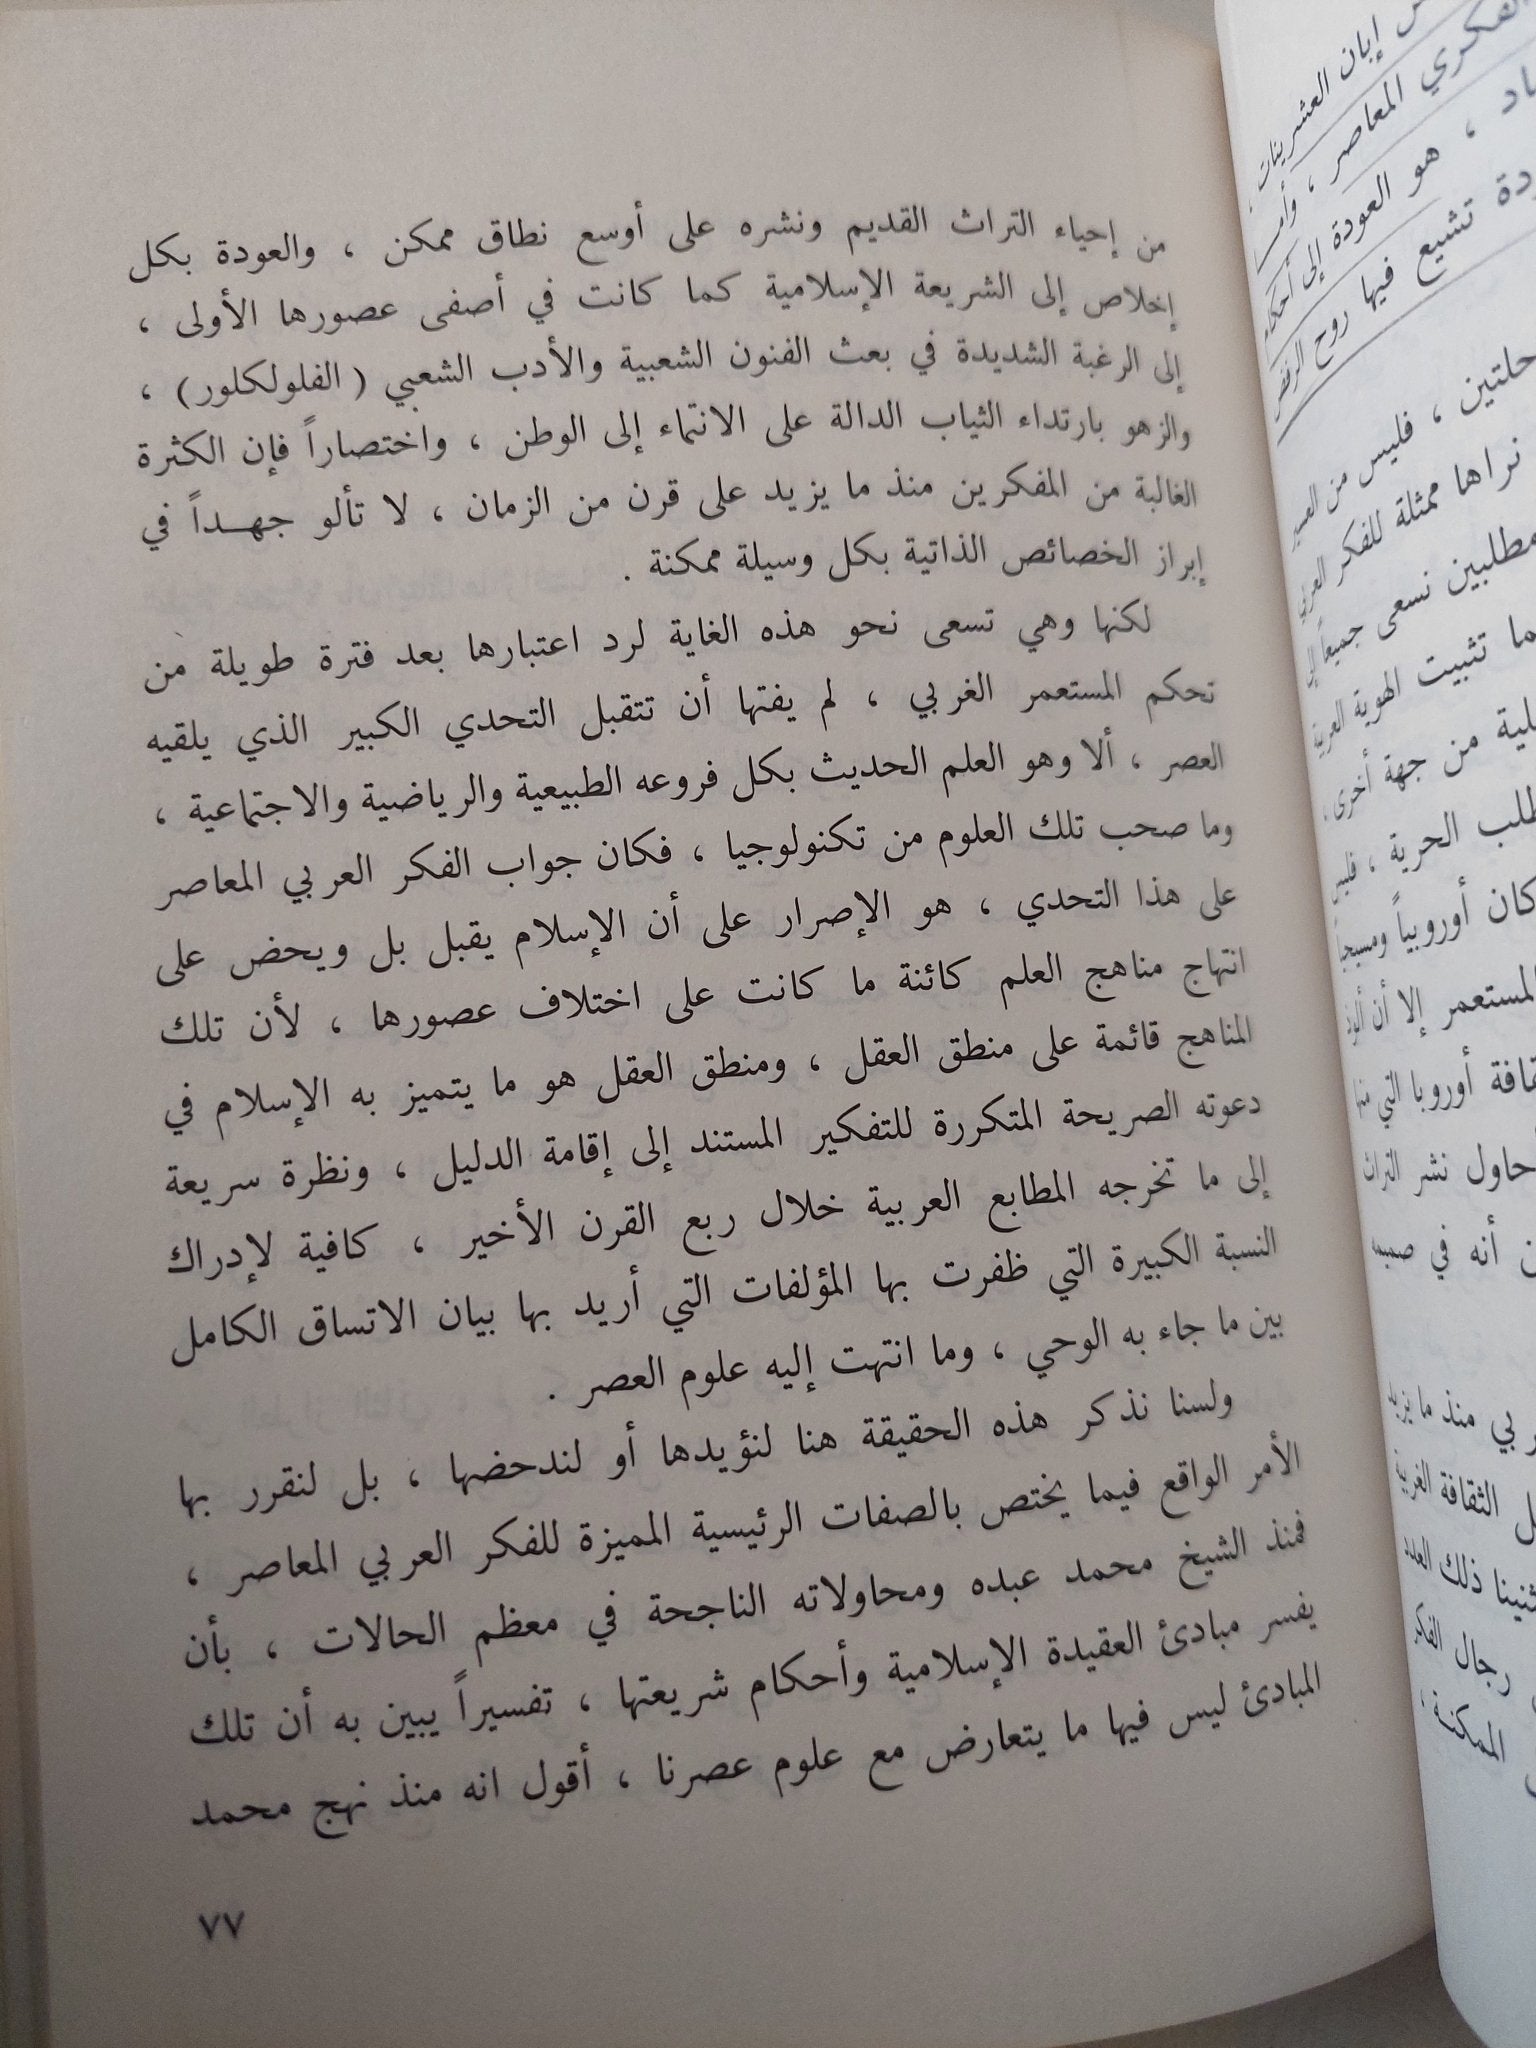 من إحياء التراث القديم ونشره على أوسع نطاق ممكن ، والعودة بكل
إخلاص إلى الشريعة الإسلامية كما كانت في أصفى عصورها الأولى ،
إلى الرغبة الشديدة في بعث الفنون الشعبية والأدب الشعبي ( الفلولكلور) ،
والزهو بارتداء الثياب الدالة على الانتماء إلى الوطن ، واختصاراً فإن الكثرة
الغالبة من المفكرين منذ ما يزيد على قرن من الزمان ، لا تألو جهـداً في
إبراز الخصائص الذاتية بكل وسيلة ممكنة .
لكنها وهي تسعى نحو هذه الغاية لرد اعتبارها بعد فترة طويلة من
تحكم المستعمر الغربي ، لم يفتها أن تتقبل التحدي الكبير الذي يلقيه
العصر ، ألا وهو العلم الحديث بكل فروعه الطبيعية والرياضية والاجتماعية ،
وما صحب تلك العلوم من تكنولوجيا ، فكان جواب الفكر العربي المعاصر
على هذا التحدي ، هو الإصرار على أن الإسلام يقبل بل ويحض على
انتهاج مناهج العلم كائنة ما كانت على اختلاف عصورها ، لأن تلك
المناهج قائمة على منطق العقل ، ومنطق العقل هو ما يتميز به الإسلام في
دعوته الصريحة المتكررة للتفكير المستند إلى إقامة الدليل ، ونظرة سريعة
إلى ما تخرجه المطابع العربية خلال ربع القرن الأخير ، كافية لإدراك
النسبة الكبيرة التي ظفرت بها المؤلفات التي أريد بها بيان الاتساق الكامل
بين ما جاء به الوحي ، وما انتهت إليه علوم العصر .
ولسنا نذكر هذه الحقيقة هنا لنؤيدها أو لندحضها ، بل لنقرر بها
الأمر الواقع فيما يختص بالصفات الرئيسية المميزة للفكر العربي المعاصر ،
فمنذ الشيخ محمد عبده ومحاولاته الناجحة في معظم الحالات ، بأن
يفسر مبادئ العقيدة الإسلامية وأحكام شريعتها ، تفسيراً يبين به أن تلك
المبادئ ليس فيها ما يتعارض مع علوم عصرنا ، أقول انه منذ نهج محمد
٧٧
إبان العشرينات
الفكري المعاصر ،
، هو العودة إلى
تشيع فيها روح
، فليس من
نراها ممثلة للفكر
مطلبين نسعى جميعاً إلى
ما تثبيت الهوية العربية
من جهة أخرى ،
الحرية ،
كان أوروبياً
المستعمر إلا أن
أوروبا التي
نشر التراث
أنه في صميمه
منذ ما يزيد
الثقافة الغربية
ذلك
رجال الفكر
الممكنـة ،